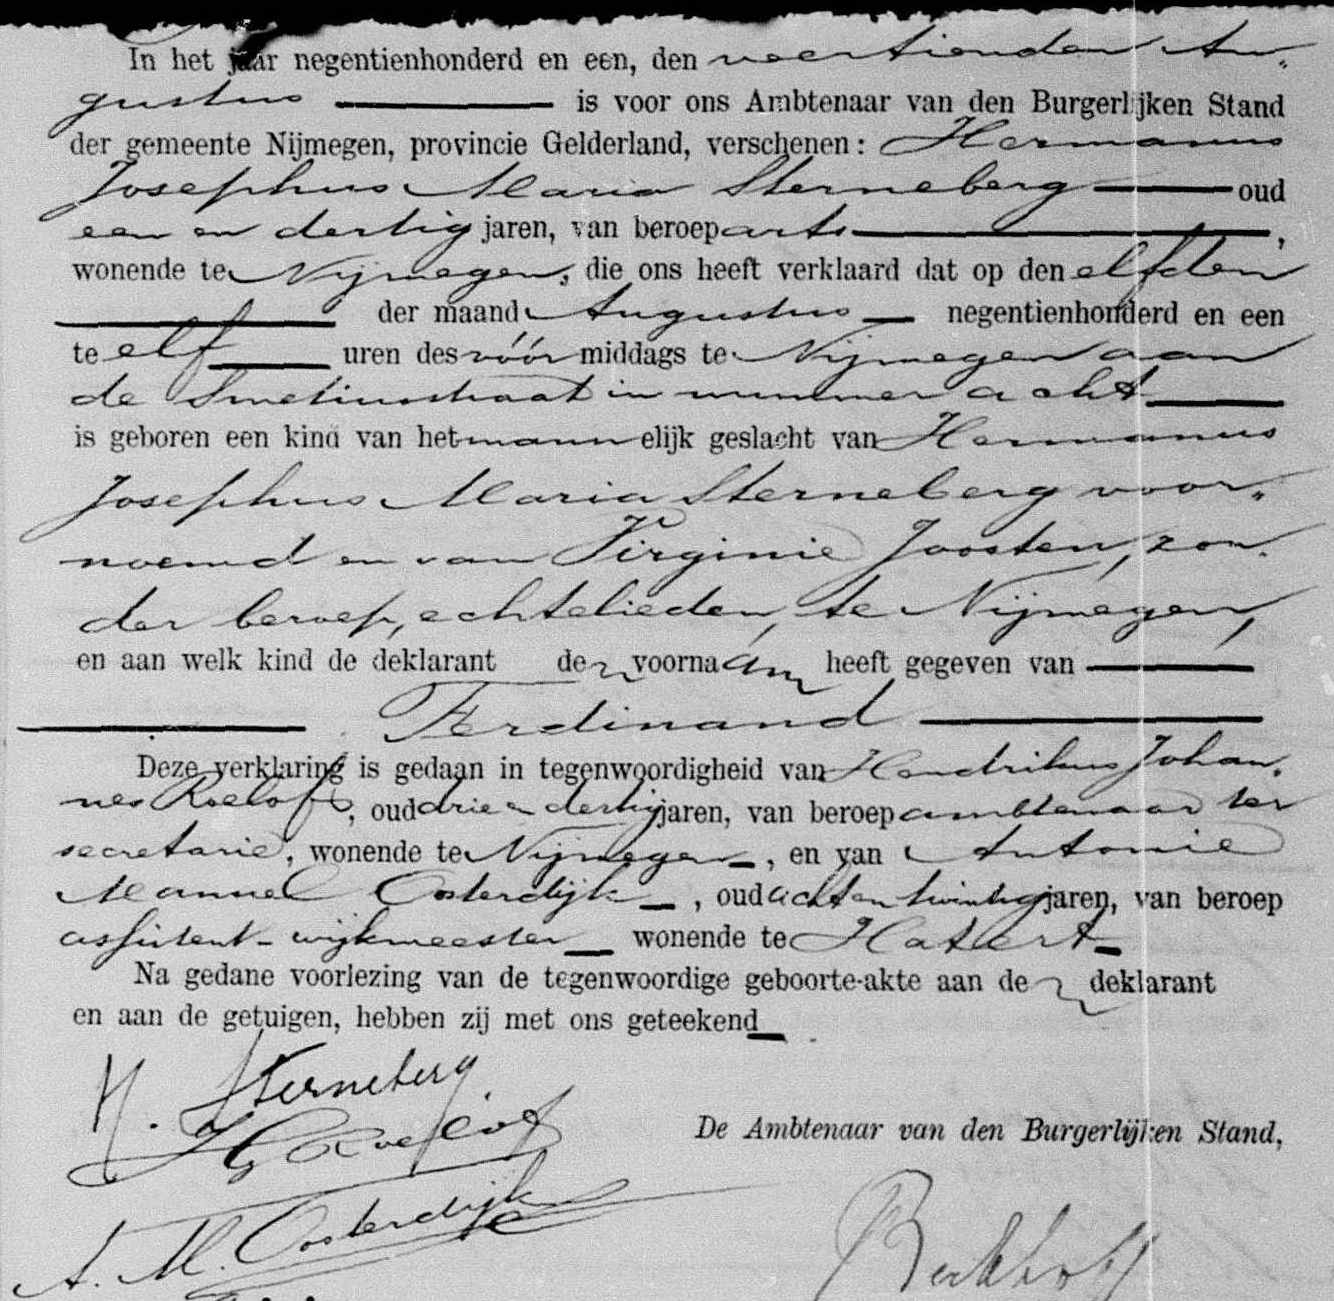 In het jaar negentienhonderd en een, den veertienden Au-
gustus is voor ons Ambtenaar van den Burgerlijken Stand
der gemeente Nijmegen, provincie Gelderland, verschenen: Hermanus
Josephus Maria Sterneberg oud
een en dertig jaren, van beroep arts,
wonende te Nijmegen, die ons heeft verklaard dat op den elfden
der maand Augustus negentienhonderd en een
te elf uren des vóór middags te Nijmegen aan
de Smetiusstraat in nummer acht
is geboren een kind van het mannelijk geslacht van Hermanus
Josephus Maria Sterneberg voor-
noemd en van Virginie Joosten, zon-
der beroep, echtelieden, te Nijmegen,
en aan welk kind de deklarant den voornaam heeft gegeven van
Ferdinand
Deze verklaring is gedaan in tegenwoordigheid van Hendrikus Johan-
nes Roelofs, oud drie en dertig jaren, van beroep ambtenaar ter
secretarie, wonende te Nijmegen, en van Antonie
Manuel Oosterdijk, oud acht en twintig jaren, van beroep
assistent-wijkmeester wonende te Hatert
Na gedane voorlezing van de tegenwoordige geboorte-akte aan den deklarant
en aan de getuigen, hebben zij met ons geteekend
H. Sterneberg
De Ambtenaar van den Burgerlijken Stand,
A. M. Oosterdijk